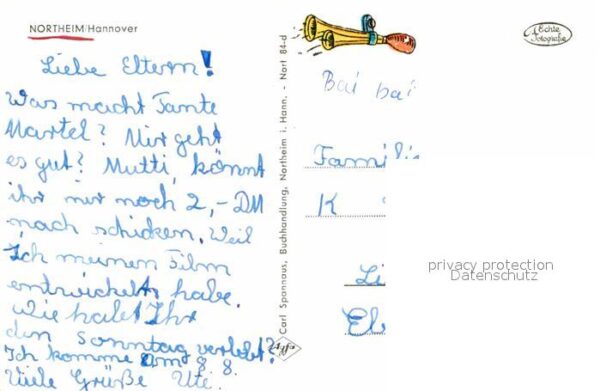 NORTHEIM/Hannover
Liebe Eltern!
Was macht Tante
Martel? Mir geht
es gut? Mutti, könnt
ihr mir noch 2,-DM
nach schicken. Weil
Ich meinen Film
entwickelt habe.
Wie habt Ihr
den Sonntag verlebt?
Ich komme am 8 8.
Viele Grüße Uti.
Carl Spannaus, Buchhandlung, Northeim i. Hann. - Nort 84-d
Agfa
Echte
Fotografie
Bai bai
Famili
K
Li
Ele
privacy protection
Datenschutz